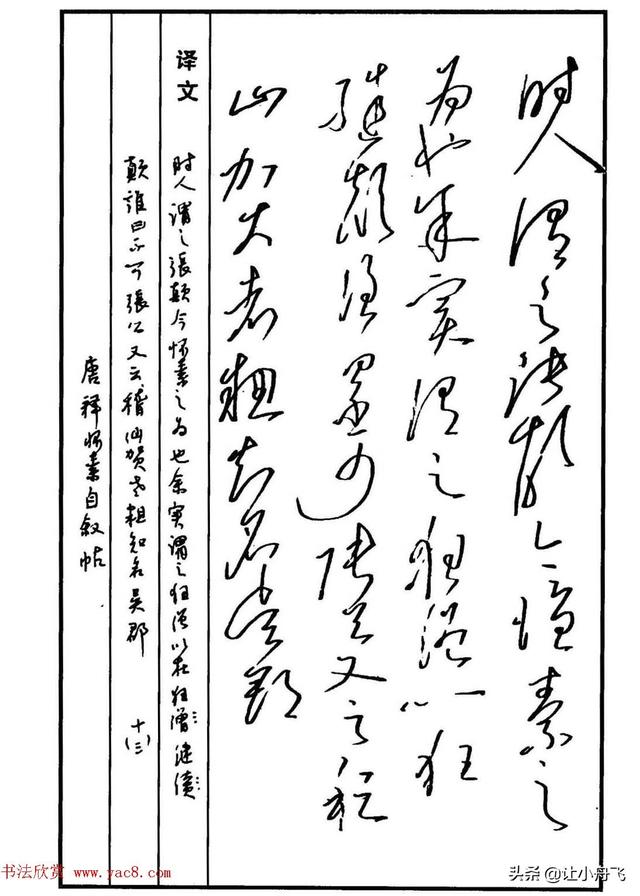 时人谓之张颠今怀素之
为也余实谓之狂僧以狂
继颠谁曰不可张公又云稽
山贺老粗知名吴郡
译文
时人謂之張顛今怀素之为也余实謂之狂僧以在狂僧继续
顛誰曰不可張公又云稽山贺老粗知名吴郡 十(三)
唐释怀素自叙帖
书法欣赏 www.yac8.com
头条 @让小舟飞